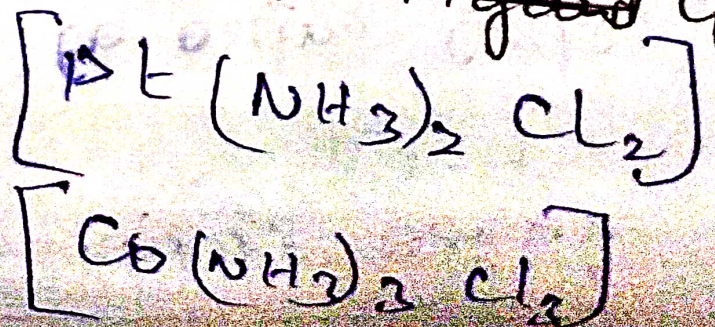 [Pt(NH3)2 Cl2]
[Co(NH3)3 Cl3]